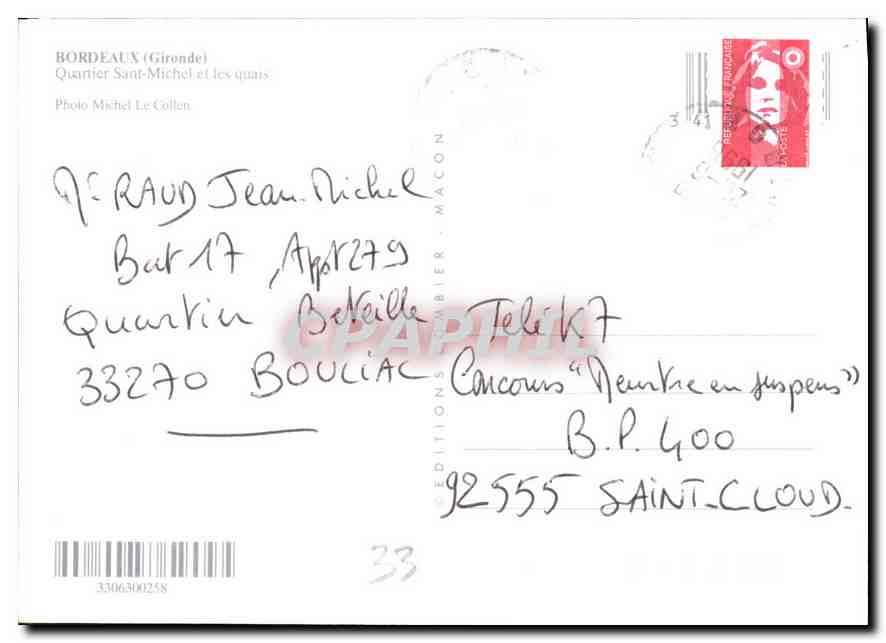 BORDEAUX (Gironde)
Quartier Sant-Michel et les quais
Photo Michel Le Collen
Mr RAUD Jean-Michel
Bat 17, Appt 279
Quartier Beteille
33270 BOULIAC
© EDITIONS COMBIER - MACON
REPUBLIQUE FRANÇAISE
LA POSTE
Télé K7
Concours "Meurtre en suspens"
B.P. 400
92555 SAINT-CLOUD-
CPAPHIL
3306300258
33